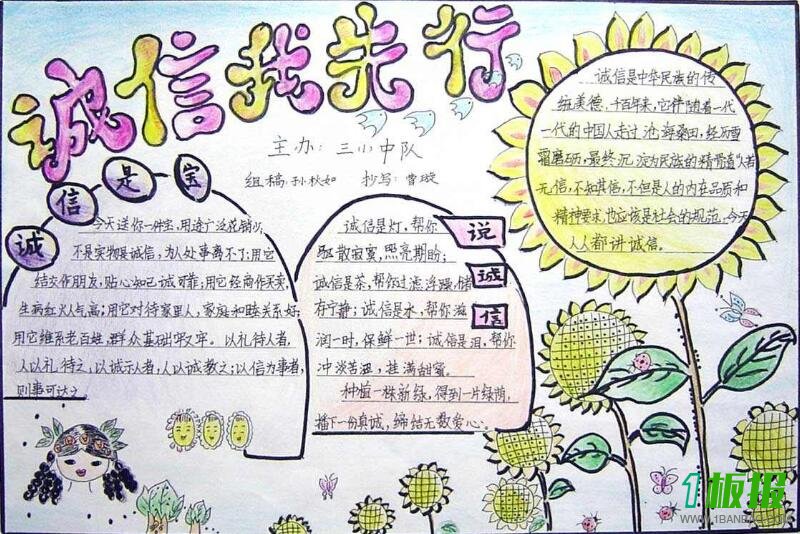 诚信我先行
主办：三小中队
组稿：孙秋如 抄写：曹璇
诚信是宝
今天送你一件宝，用途广泛花销少；
不是实物是诚信，为人处事离不了；用它
结交作朋友，贴心知己诚可靠；用它经商作买卖，
生病红火人气高；用它对待家里人，家庭和睦关系好；
用它维系老百姓，群众基础牢牢。以礼待人者，
人以礼待之；以诚示人者，人以诚教之；以信为事者，
则事可达之。
说诚信
诚信是灯，帮你
驱散寂寞，照亮期盼；
诚信是茶，帮你过滤浮躁，储
存宁静；诚信是水，帮你滋
润一时，保鲜一世；诚信是泪，帮你
冲淡苦涩，挂满甜蜜。
种植一株新绿，得到一片绿荫，
播下一份真诚，缔结无数爱心。
诚信是中华民族的传
统美德，千百年来，它伴随着一代
一代的中国人走过沧海桑田，经历雪
霜磨砺，最终沉淀为民族的精骨道"人若
无信，不知其信，不但是人的内在品质和
精神要求，也应该是社会的规范，今天
人人都讲诚信。
1板报
WWW.1BANBAO.COM